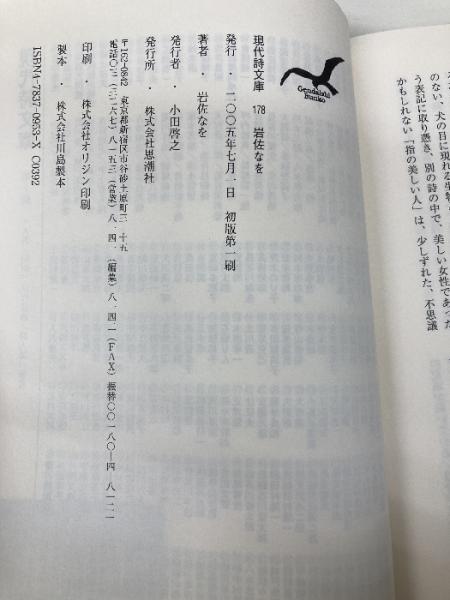 う表記に取り憑き、別の詩の中で、美しい女性であった
かもしれない「指の美しい人」は、少しずれた、不思議
Gendaishi
Bunko
現代詩文庫 178 岩佐なを
発行 ・ 二〇〇五年七月一日 初版第一刷
著者 ・ 岩佐なを
発行者 ・ 小田啓之
発行所 ・ 株式会社思潮社
〒162-0842 東京都新宿区市谷砂土原町三―十五
電話〇三(三二六七)八一五三(営業)八一四一(編集)八一四二(FAX)振替〇〇一八〇―四―八一二一
印刷 ・ 株式会社オリジン印刷
製本 ・ 株式会社川島製本
ISBN4-7837-0953-X C0392